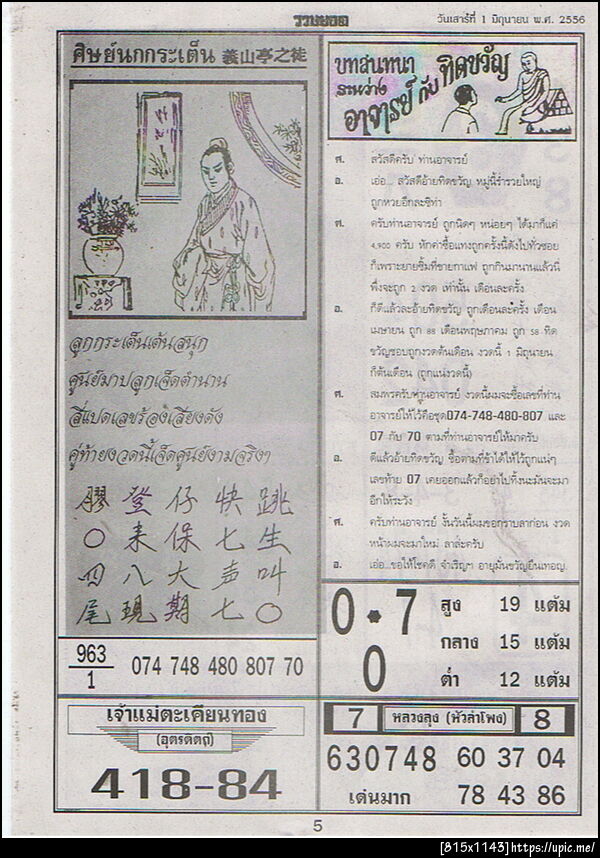 รวมยอด
วันเสาร์ที่ 1 มิถุนายน พ.ศ. 2556
ศิษย์นกกระเต็น 義山亭之徒
ลูกกระเด็นเต้นสนุก
ศูนย์มาปลูกเจ็ดตำนาน
สี่แปดเลขร้องเสียงดัง
คู่ท้ายงวดนี้เจ็ดศูนย์งามจริงๆ
膠 登 仔 快 跳
〇 来 保 七 生
四 八 大 声 叫
尾 現 期 七 〇
963
1
074 748 480 807 70
เจ้าแม่ตะเคียนทอง
(อุตรดิตถ์)
418-84
บทสนทนา
ระหว่าง
อาจารย์ กับ ทิดขวัญ
ศ. สวัสดีครับ ท่านอาจารย์
อ. เอ่อ... สวัสดีอ้ายทิดขวัญ หมู่นี้ร่ำรวยใหญ่
ถูกหวยอีกละซิท่า
ศ. ครับท่านอาจารย์ ถูกนิดๆ หน่อยๆ ได้มาก็แค่
4,900 ครับ หักค่าซื้อแทงถูกครั้งนี้ดังไปทั่วซอย
ก็เพราะยายซิ้มที่ขายกาแฟ ถูกกินมานานแล้วนี่
พึ่งจะถูก 2 งวด เท่านั้น เดือนละครั้ง
อ. ก็ดีแล้วละอ้ายทิดขวัญ ถูกเดือนละครั้ง เดือน
เมษายน ถูก 88 เดือนพฤษภาคม ถูก 58 ทิด
ขวัญชอบถูกงวดต้นเดือน งวดนี้ 1 มิถุนายน
ก็ต้นเดือน (ถูกแน่งวดนี้)
ศ. สมพรครับท่านอาจารย์ งวดนี้ผมจะซื้อเลขที่ท่าน
อาจารย์ให้ไว้คือชุด074-748-480-807 และ
07 กับ 70 ตามที่ท่านอาจารย์ให้มาครับ
อ. ดีแล้วอ้ายทิดขวัญ ซื้อตามที่ข้าได้ให้ไว้ถูกแน่ๆ
เลขท้าย 07 เคยออกแล้วก็อย่าไปทิ้งนะมันจะมา
อีกให้ระวัง
ศ. ครับท่านอาจารย์ งั้นวันนี้ผมขอกราบลาก่อน งวด
หน้าผมจะมาใหม่ ลาล่ะครับ
อ. เอ่อ...ขอให้โชคดี จำเริญๆ อายุมั่นขวัญยืนเทอญ.
0 • 7
0
สูง 19 แต้ม
กลาง 15 แต้ม
ต่ำ 12 แต้ม
7 หลวงลุง (หัวลำโพง) 8
630748 60 37 04
เด่นมาก 78 43 86
5
[815x1143]https://upic.me/